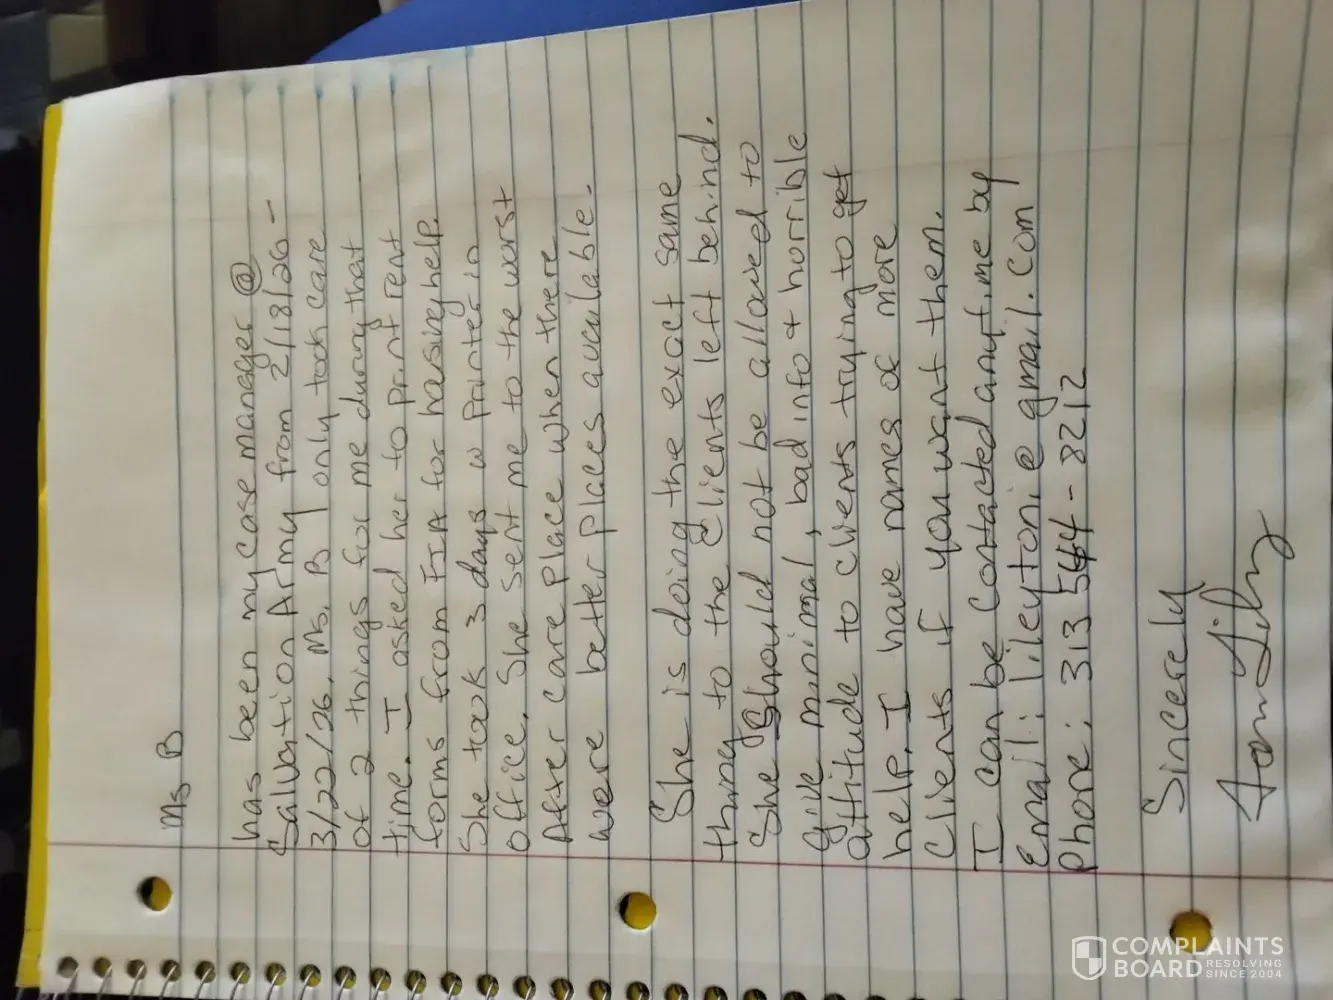 Ms B
has been my case manager @
Salvation Army from 2/18/26 -
3/22/26. Ms. B only took care
of 2 things for me during that
time. I asked her to print rent
forms from FIA for housing help.
She took 3 days w printer in
office. She sent me to the worst
After care place when there
were better places available.
She is doing the exact same
thing to the clients left behind.
She should not be allowed to
give minimal, bad info + horrible
attitude to clients trying to get
help. I have names of more
clients if you want them.
I can be contacted anytime by
Email: lileytoni@gmail.com
Phone: 313 564-8212
Sincerely
COMPLAINTS
BOARD RESOLVING
SINCE 2004